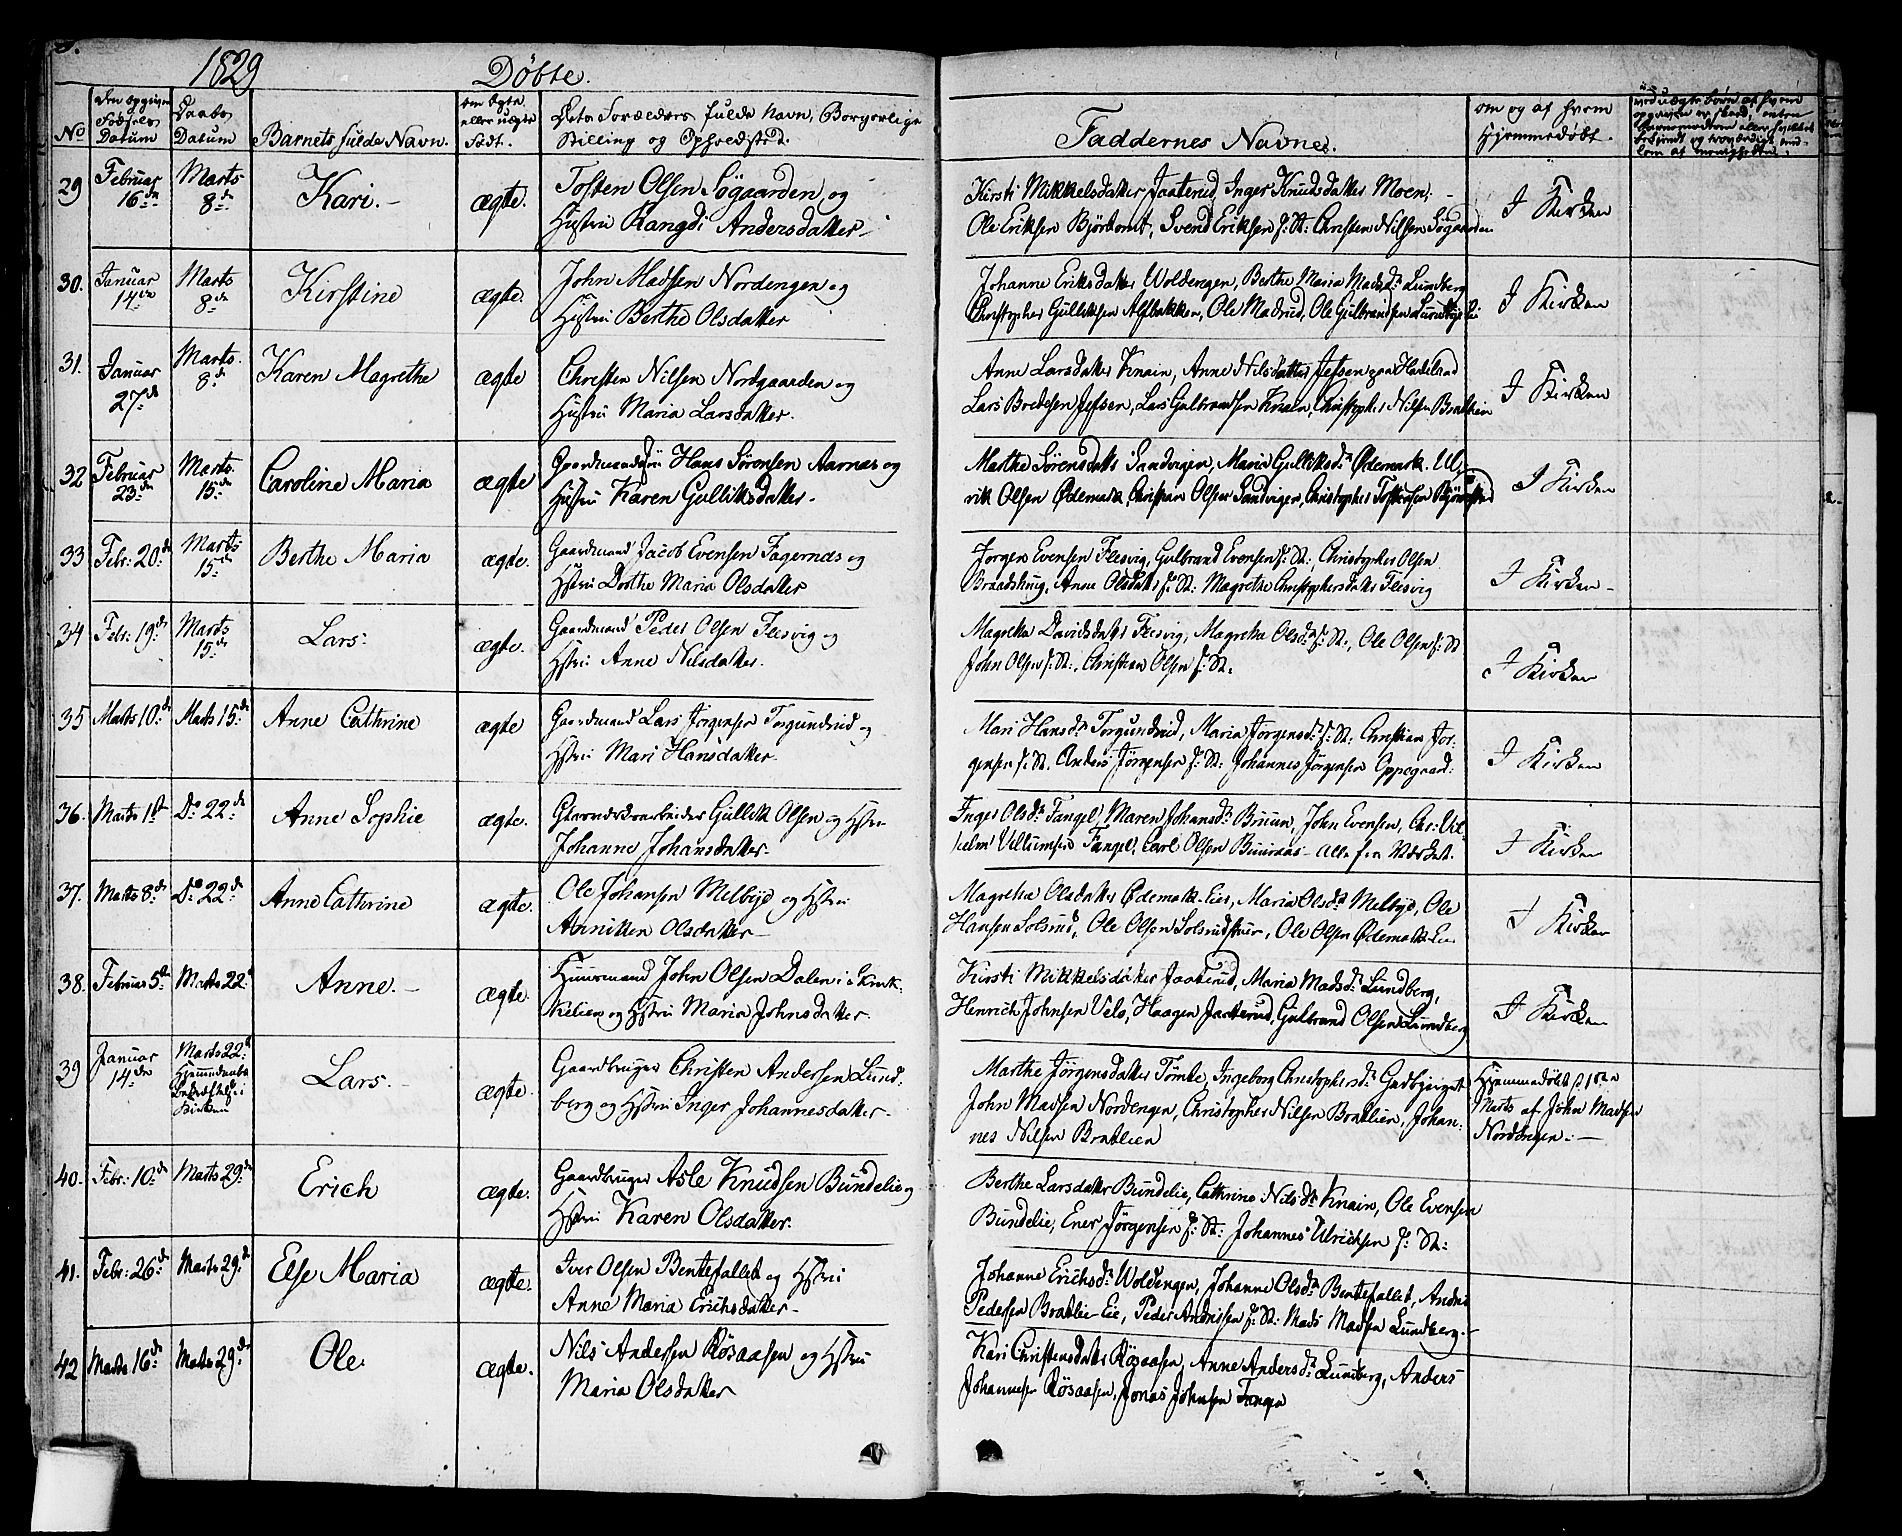 1829 Döbte.
No
Den opgivne Födsels Datum
Daabs Datum
Barnets fulde Navn.
om Ægte eller uægte Födt.
Dets Forældres fulde Navn, Borgerlige Stilling og Opholdsted.
Faddernes Navne.
om og af hvem Hjemmedöbt.
29 Februar 16de Marts 8de Kari. ægte. Tosten Olsen Sögaarden og
Hustru Rangdi Andersdatter
Kirsti Mikkelsdatter Jaaterud, Inger Knudsdatter Moen,
Ole Eriksen Björtomt, Svend Eriksen s: St: Christen Nilsen Sögaarden
I Kirken
30. Januar 14de Marts 8de Kirstine ægte. John Madsen Nordengen og
Hustru Berthe Olsdatter
Johanne Eriksdatter Woldengen, Berthe Maria Madsdr Lundberg
Christopher Gulliksen Alfbakken, Ole Madrud, Ole Gulbrandsen
I Kirken
31. Januar 27de Marts 8de Karen Magrethe ægte Christen Nilsen Nordgaarden og
Hustru Maria Larsdatter.
Anne Larsdatter Knain, Anne Nilsdatter Jefsen paa Hadeland
Lars Bredesen Jefsen, Lars Gulbrandsen Knain, Christopher Nilsen Bratlien
I Kirken
32 Februar 23de Marts 15de Caroline Maria ægte Gaardmands Hans Sörensen Aarnæs og
Hustru Karen Gulliksdatter.
Marthe Sörensdatr Sandvigen, Maria Gulliksdr Ødemark. Ul-
rik Olsen Ødemark, Christian Olsen Sandvigen, Christopher
I Kirken
33 Febr: 20de Marts 15de Berthe Maria ægte. Gaardmand Jacob Evensen Fagernæs og
Hstru Dorthe Maria Olsdatter
Jörgen Evensen Flesvig, Gulbrand Evensen s: St:, Christopher Olsen
Anne Olsdatr s: St: Magrethe Christophersdatter Flesvig
I Kirken
34 Febr: 19de Marts 15de Lars: ægte. Gaardmand Peder Olsen Flesvig og
Hstru Anne Nilsdatter.
Magretha Davidsdatr Flesvig, Magretha Olsdr s: St:, Ole Olsen s: St
John Olsen s: St:, Christian Olsen s: St:
I Kirken
35 Marts 10de Marts 15de Anne Cathrine ægte Gaardmand Lars Jörgensen Torgundrud og
Hstru Mari Hansdatter.
Mari Hansdr Torgundrud, Maria Jörgensdr s: St: Christian Jör-
gensen s: St. Anders Jörgensen s: St: Johannes Jörgensen Oppegaard:
I Kirken
36. Marts 1ste Do 22de Anne Sophie ægte. Glasværksarbeider Gullik Olsen og Hstru
Johanne Johansdatter
Inger Olsdr Fangel, Maren Johansdr, John Evensen, Chr: Vil
helm Villumsen Fangel, Carl Olsen - alle fra Værket.
I Kirken
37. Marts 8de Do 22de Anne Cathrine ægte. Ole Johansen Melbye og Hstru
Anniken Olsdatter
Magretha Olsdatter Ødemark-Eier, Maria Olsdr Melbye, Ole
Hansen Solsrud, Ole Olsen Solsrudstuen, Ole Olsen Ødemark-Eie.
I Kirken
38. Februar 5te Marts 22de Anne. ægte. Huusmand John Olsen Dalen i
og Hstru Maria Johnsdatter.
Kirsti Mikkelsdatter Jaaterud, Maria Madsdr Lundberg,
Henrich Johnsen Velo, Haagen Jaaterud, Gulbrand Olsen Lundberg
I Kirken
39 Januar 14de Marts 22de Hjemmedaaben Bekræftelse i Kirken Lars. ægte. Gaardbruger Christen Andersen Lund-
berg og Hstru Inger Johannesdatter
Marthe Jörgensdatter Tömte, Ingeborg Christophersdr Gudbjerget
John Madsen Nordengen, Christopher Nilsen Bratlien, Johan-
nes Nilsen Bratlien
Hjemmedöbt d: 1ste
Marts af John Madsen
Nordengen.
40. Febr: 10de Marts 29de Erich ægte. Gaardbruger Asle Knudsen Bundelie og
Hstru Karen Olsdatter.
Berthe Larsdatr Bundelie, Cathrine Nilsdr Knain, Ole Evensen
Bundelie, Ener Jörgensen s: St: Johannes Ulrichsen s: St:
41. Febr: 26de Marts 29de Else Maria ægte. Iver Olsen Bentefallet og Hstru
Anne Maria Erichsdatter
Johanne Erichsdr Woldengen, Johanne Olsdr Bentefallet, Andris
Pedersen Bratlie-Eie, Peder Andrissen s: St: Mads Madsen Lundberg.
42 Marts 16de Marts 29de Ole ægte. Nils Andersen Rösaasen og Hstru
Maria Olsdatter
Kari Christensdatr Rösaasen, Anne Andersdr Lundberg, Anders
Johannesen Rösaasen, Jonas Johnsen Tangen